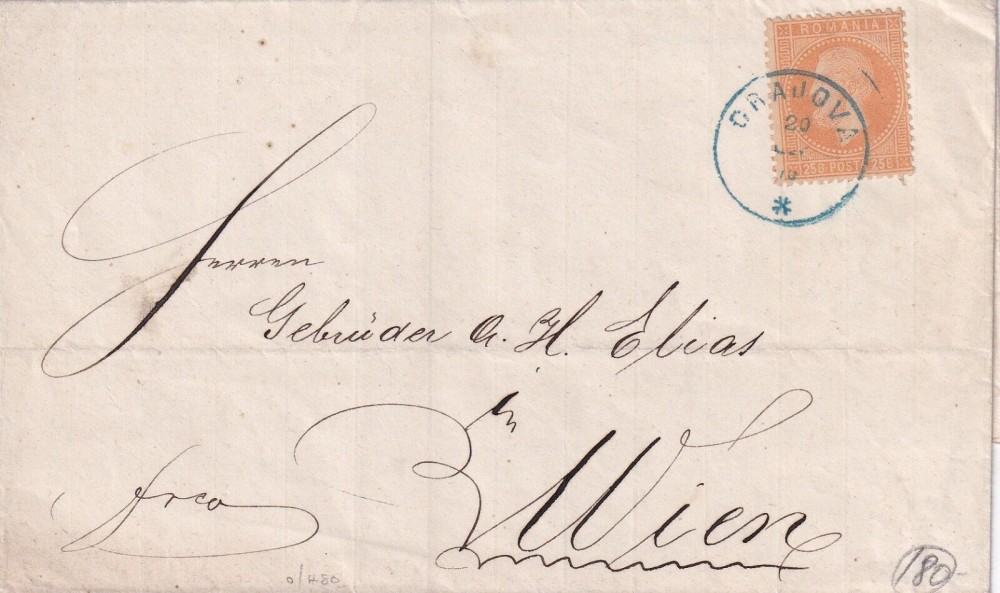 ROMANIA
25B POST 25B
CRAJOVA
20
Herren
Gebrüder A. H. Elias
in
Wien
frco
0/480
180-